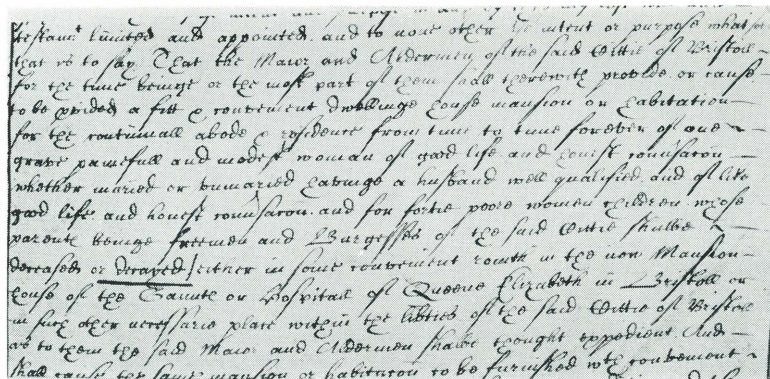 testamt limited and appointed and to none other intent or purpose what soe
that is to say That the Maior and Aldermen of the said Cittie of Bristoll
for the time beinge or the most part of them shall therewith provide or cause
to be pvided a fitt & convenient dwellinge house mansion or habitation
for the continuall abode & residence from time to time forever of one
grave painefull and modest woman of good life and honest conversacon
whether maried or unmaried havinge a husband well qualified and of like
good life and honest conversacon and for fortie poore women children whose
parents beinge freemen and Burgesses of the said Cittie shalbe
deceased or decayed either in some convenient rowth in the now Mansion
house of the Gaunts or Hospitall of Queene Elizabeth in Bristoll or
in such other necessarie place within the libties of the said Cittie of Bristoll
as to them the said Maior and Aldermen shalbe thought expedient And
shall cause the same mansion or habitacon to be furnished wth convenient